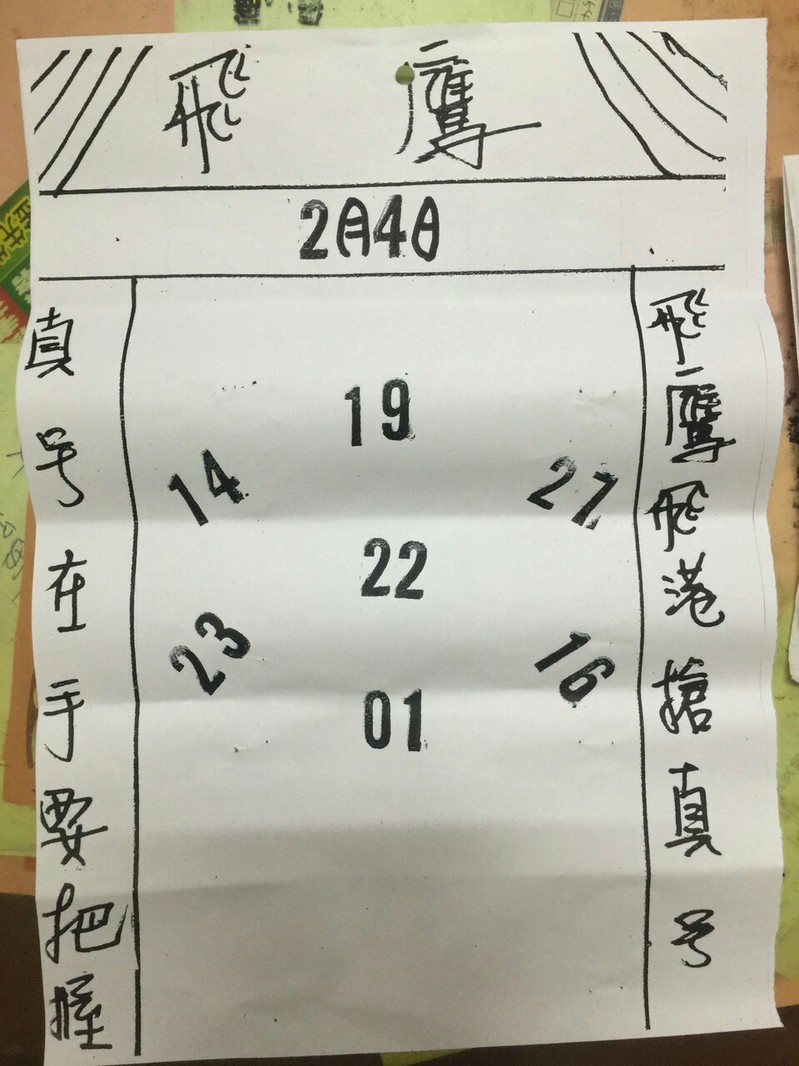 飛鷹
2月4日
飛鷹飛港搶真号
19
14
27
22
23
16
01
真号在手要把握